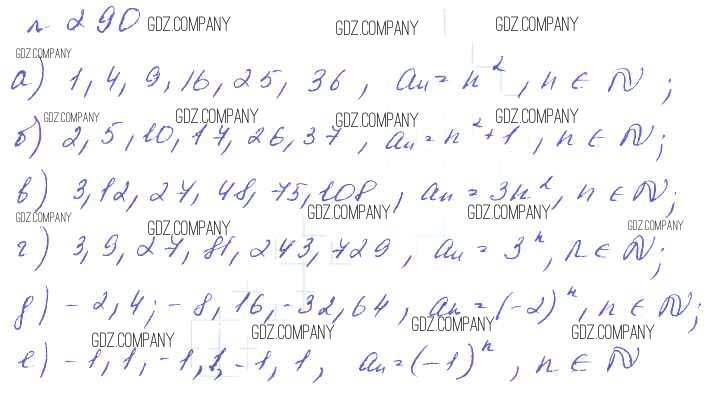 № 290 GDZ.COMPANY GDZ.COMPANY GDZ.COMPANY
GDZ.COMPANY
а) 1, 4, 9, 16, 25, 36, aₙ = n², n ∈ ℕ;
GDZ.COMPANY GDZ.COMPANY GDZ.COMPANY GDZ.COMPANY
б) 2, 5, 10, 17, 26, 37, aₙ = n² + 1, n ∈ ℕ;
в) 3, 12, 27, 48, 75, 108, aₙ = 3n², n ∈ ℕ;
GDZ.COMPANY GDZ.COMPANY GDZ.COMPANY GDZ.COMPANY GDZ.COMPANY
г) 3, 9, 27, 81, 243, 729, aₙ = 3ⁿ, n ∈ ℕ;
д) -2, 4; -8, 16, -32, 64, aₙ = (-2)ⁿ, n ∈ ℕ;
GDZ.COMPANY GDZ.COMPANY GDZ.COMPANY GDZ.COMPANY
е) -1, 1, -1, 1, -1, 1, aₙ = (-1)ⁿ, n ∈ ℕ